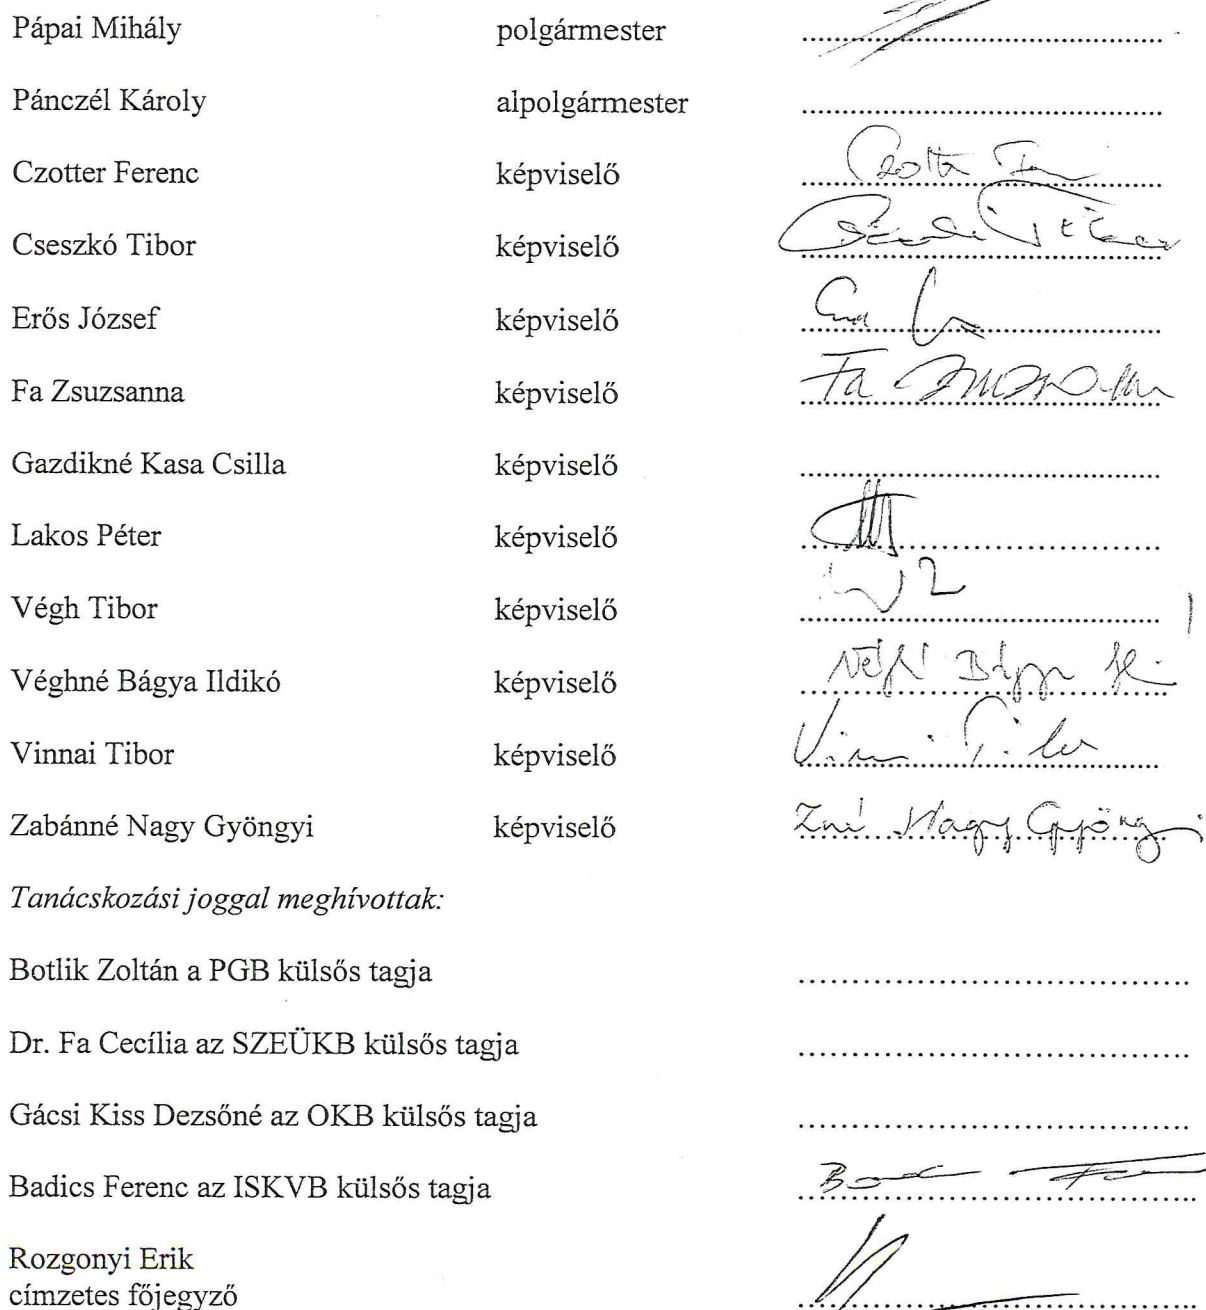 Pápai Mihály polgármester
Pánczél Károly alpolgármester
Czotter Ferenc képviselő
Cseszkó Tibor képviselő
Erős József képviselő
Fa Zsuzsanna képviselő Fa
Gazdikné Kasa Csilla képviselő
Lakos Péter képviselő
Végh Tibor képviselő
Véghné Bágya Ildikó képviselő
Vinnai Tibor képviselő
Zabánné Nagy Gyöngyi képviselő Zné Nagy Gyöngyi
Tanácskozási joggal meghívottak:
Botlik Zoltán a PGB külsős tagja
Dr. Fa Cecília az SZEÜKB külsős tagja
Gácsi Kiss Dezsőné az OKB külsős tagja
Badics Ferenc az ISKVB külsős tagja
Rozgonyi Erik
címzetes főjegyző